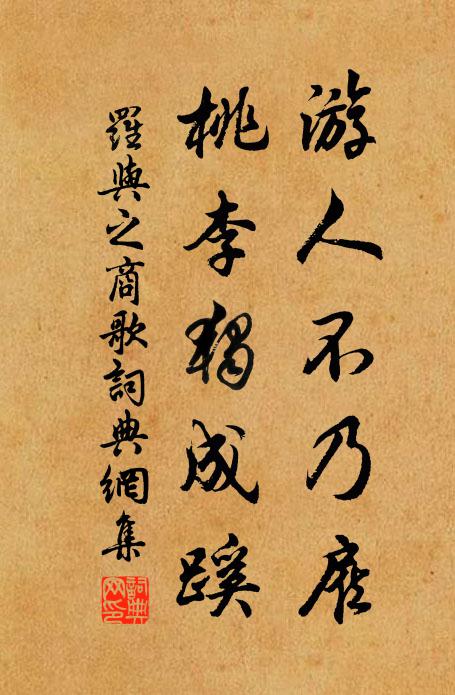 游人不乃
桃李獨成蹊
羅與之商歌詞典網集
詞典网印